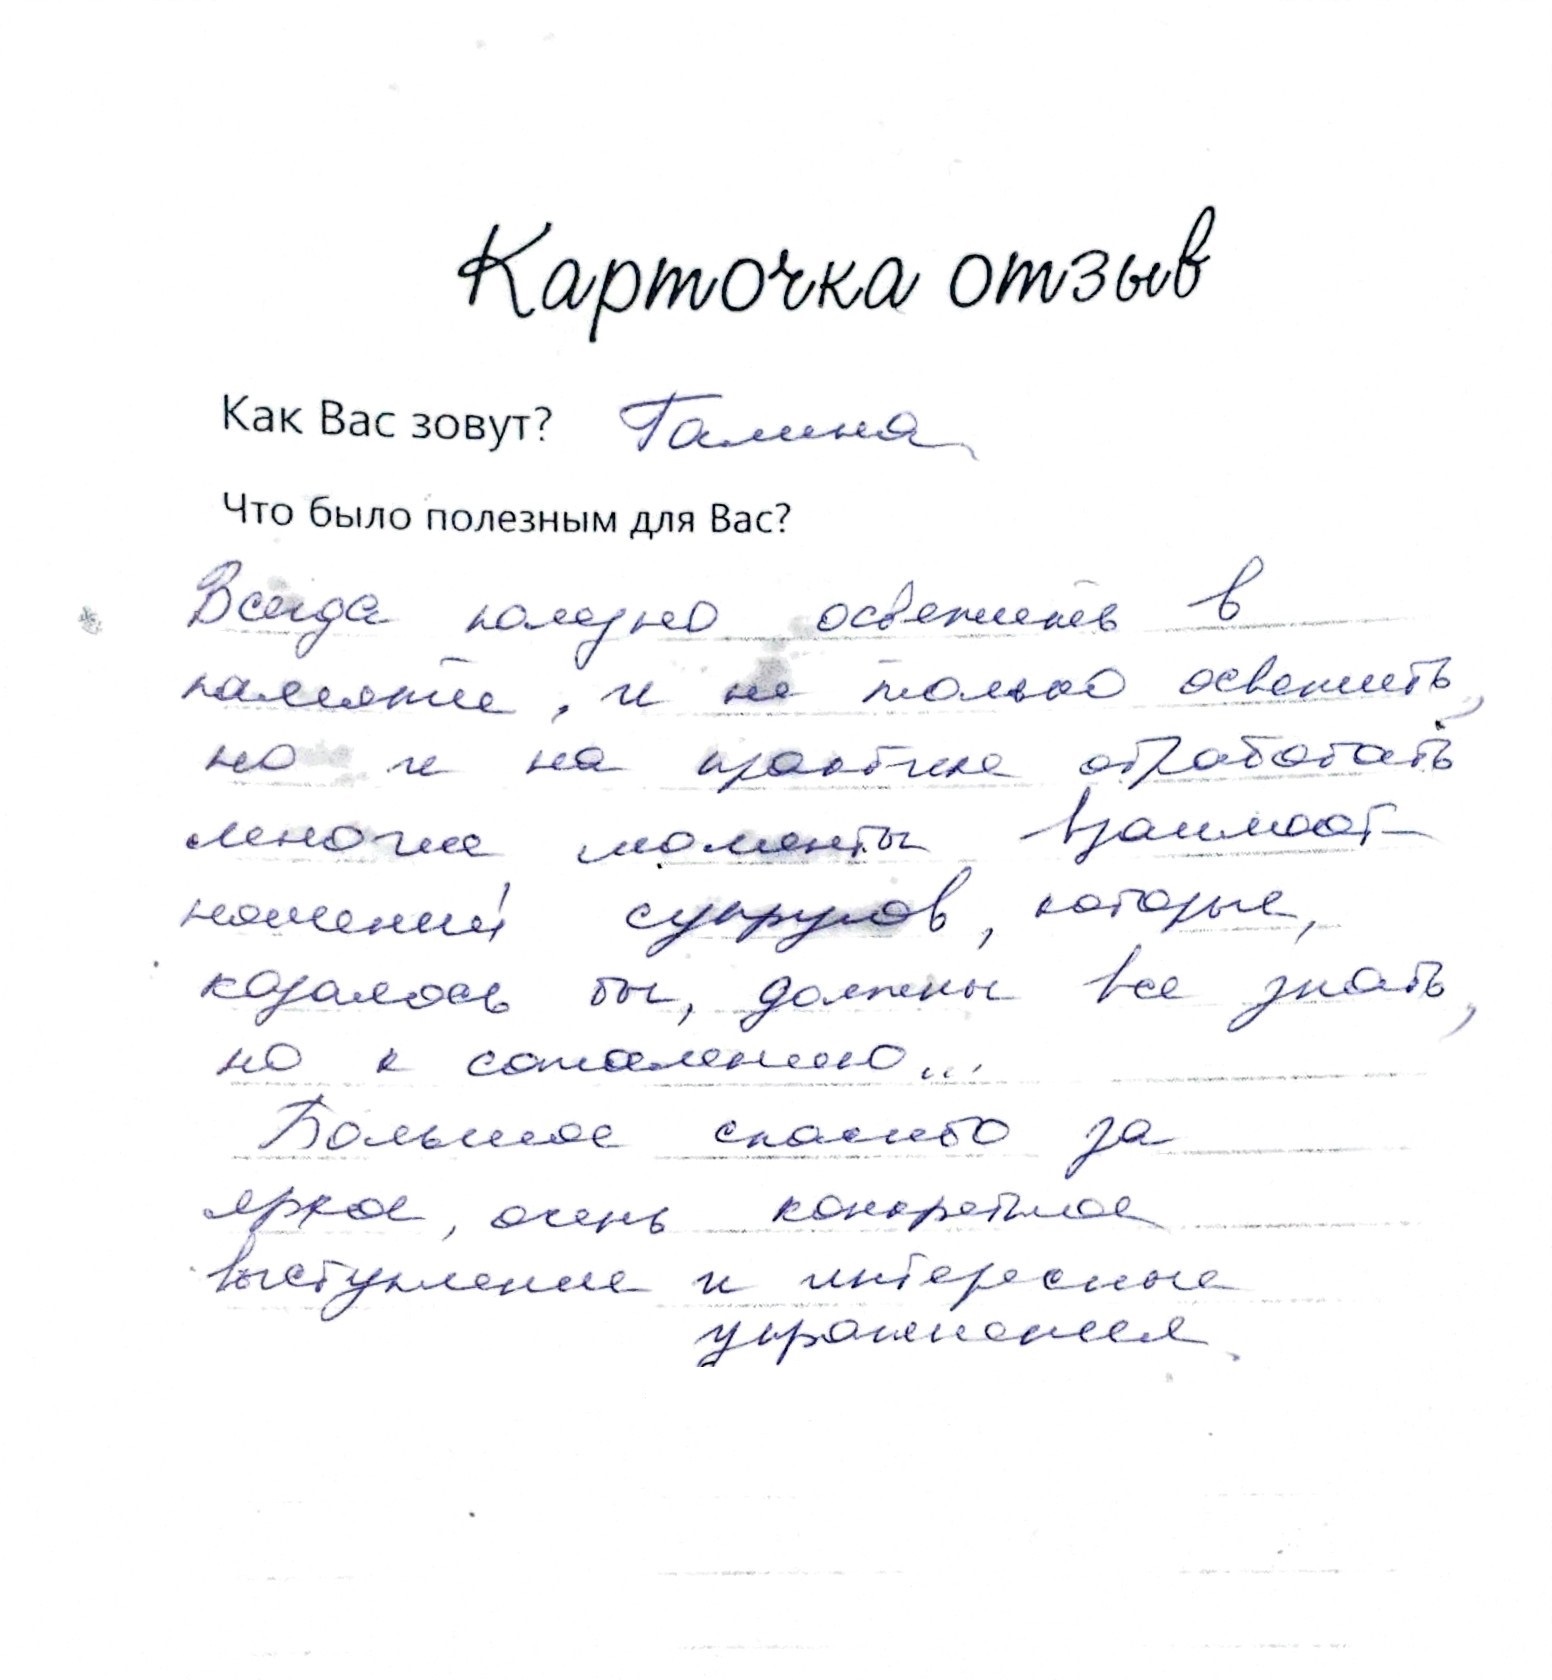 Карточка отзыв
Как Вас зовут? Галина
Что было полезным для Вас?
Всегда полезно освежить в
памяти, и не только освежить,
но и на практике отработать
многие моменты взаимоот-
ношений супругов, которые,
казалось бы, должны все знать,
но к сожалению...
Большое спасибо за
яркое, очень конкретное
выступление и интересные
упражнения.